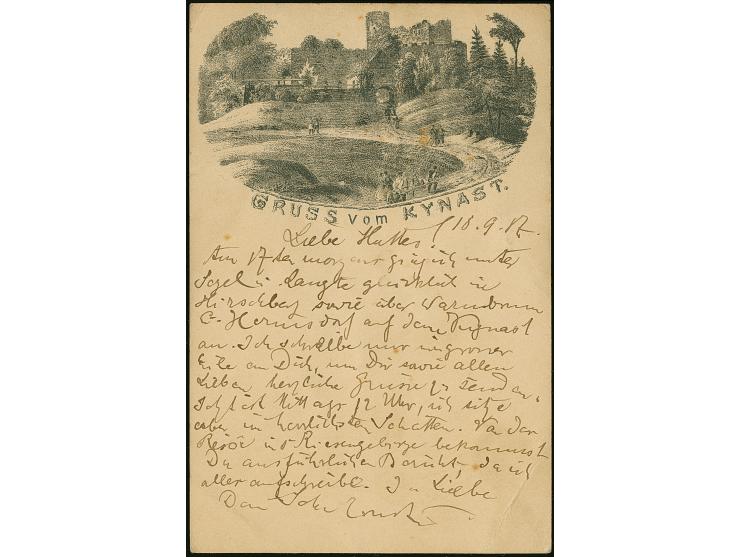 GRUSS vom KYNAST.
Liebe Mutter! 18.9.87.
Am 17ten morgens ging ich unter
Segel u. langte glücklich in
Hirschberg sowie über Warmbrunn
Hermsdorf auf dem Kynast
an. Ich schreibe nur in grosser
Eile an Dich, um Dir sowie allen
Lieben herzliche Grüsse zu senden.
Jetzt ist Mittags 12 Uhr, ich sitze
aber im herrlichsten Schatten. Von der
Reise ins Riesengebirge bekommst
Du ausführlichen Bericht, da ich
alles aufschreibe. In Liebe
Dein Sohn Ernst